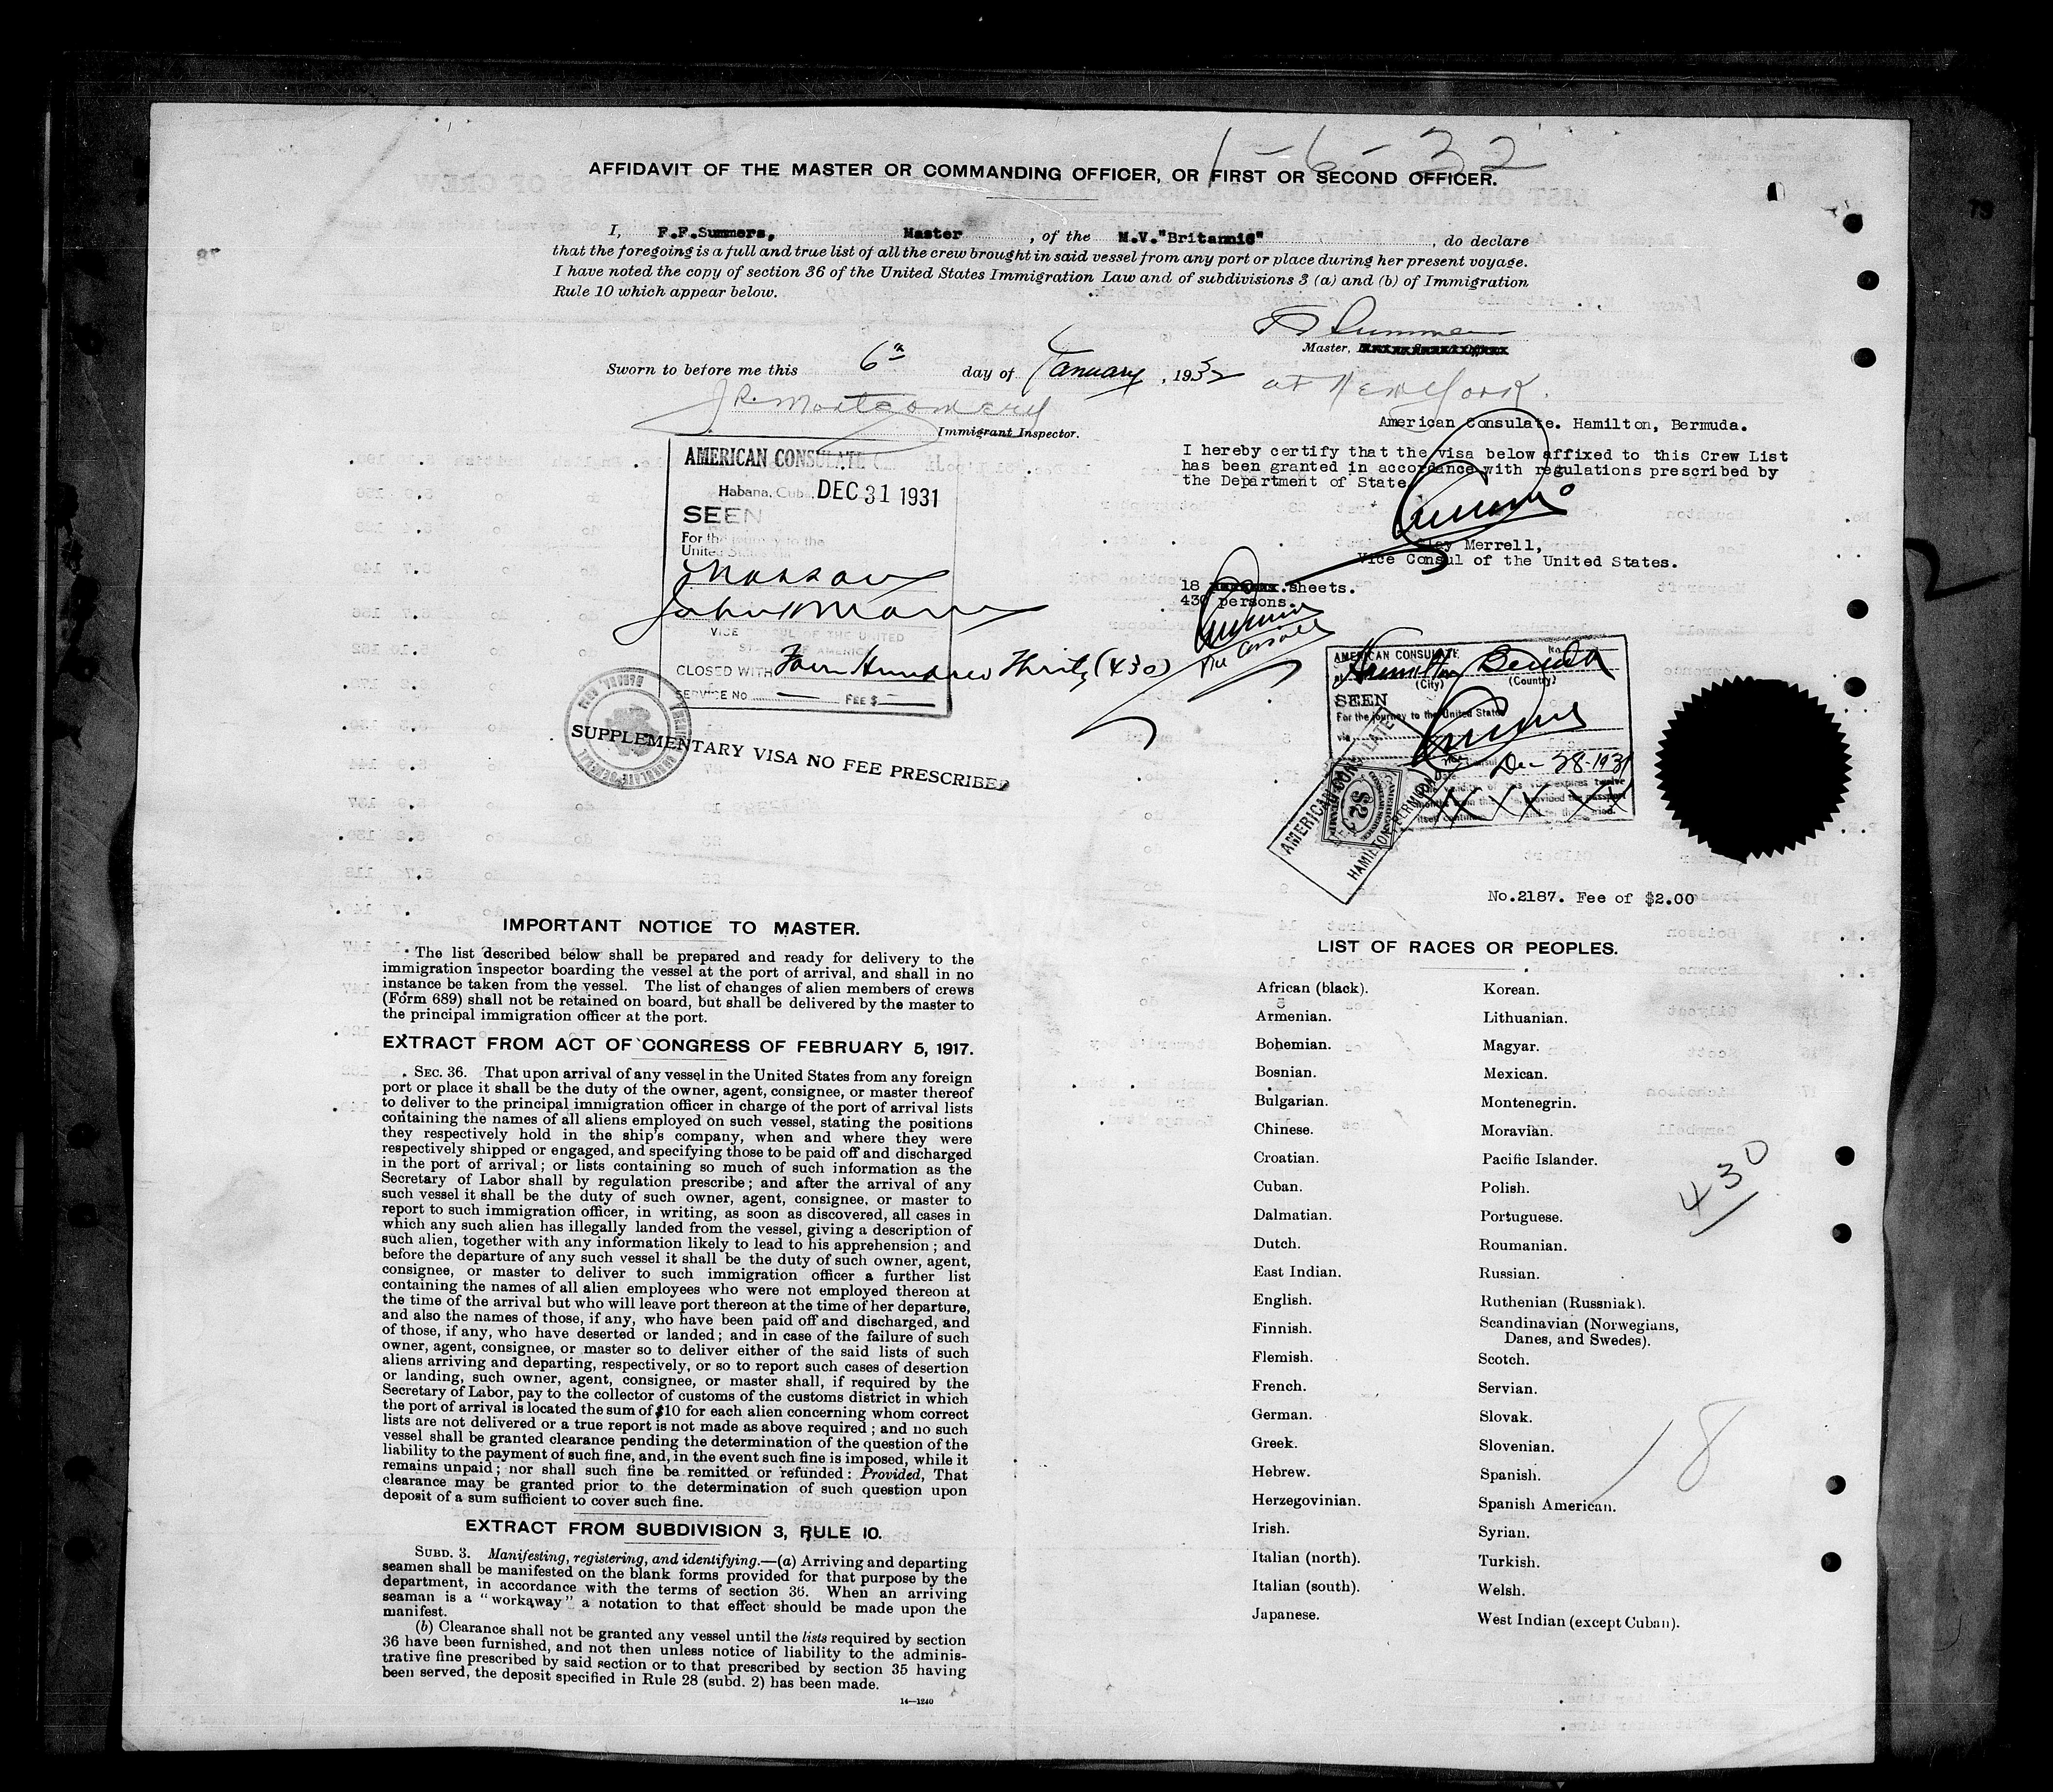 1-6-32
AFFIDAVIT OF THE MASTER OR COMMANDING OFFICER, OR FIRST OR SECOND OFFICER.
I, F.F.Summers, Master, of the M.V."Britannic", do declare
that the foregoing is a full and true list of all the crew brought in said vessel from any port or place during her present voyage.
I have noted the copy of section 36 of the United States Immigration Law and of subdivisions 3 (a) and (b) of Immigration
Rule 10 which appear below.
Master,
Sworn to before me this 6th day of January, 1932 at New York.
J R Montgomery
Immigrant Inspector.
American Consulate. Hamilton, Bermuda.
I hereby certify that the visa below affixed to this Crew List
has been granted in accordance with regulations prescribed by
the Department of State.
Clay Merrell,
Vice Consul of the United States.
18 sheets.
430 persons.
AMERICAN CONSULATE
Habana, Cuba. DEC 31 1931
SEEN
For the journey to the
United States
Nassau
VICE CONSUL OF THE UNITED
STATES OF AMERICA
CLOSED WITH Four Hundred Thirty (430)
SERVICE No FEE $
SUPPLEMENTARY VISA NO FEE PRESCRIBED
AMERICAN CONSULATE No.
at Hamilton Bermuda
(City) (Country)
SEEN
For the journey to the United States
via
Date Dec 28-1931
AMERICAN CONSULATE
HAMILTON, BERMUDA
$2
No.2187. Fee of $2.00
IMPORTANT NOTICE TO MASTER.
The list described below shall be prepared and ready for delivery to the
immigration inspector boarding the vessel at the port of arrival, and shall in no
instance be taken from the vessel. The list of changes of alien members of crews
(Form 689) shall not be retained on board, but shall be delivered by the master to
the principal immigration officer at the port.
EXTRACT FROM ACT OF CONGRESS OF FEBRUARY 5, 1917.
SEC. 36. That upon arrival of any vessel in the United States from any foreign
port or place it shall be the duty of the owner, agent, consignee, or master thereof
to deliver to the principal immigration officer in charge of the port of arrival lists
containing the names of all aliens employed on such vessel, stating the positions
they respectively hold in the ship's company, when and where they were
respectively shipped or engaged, and specifying those to be paid off and discharged
in the port of arrival; or lists containing so much of such information as the
Secretary of Labor shall by regulation prescribe; and after the arrival of any
such vessel it shall be the duty of such owner, agent, consignee, or master to
report to such immigration officer, in writing, as soon as discovered, all cases in
which any such alien has illegally landed from the vessel, giving a description of
such alien, together with any information likely to lead to his apprehension; and
before the departure of any such vessel it shall be the duty of such owner, agent,
consignee, or master to deliver to such immigration officer a further list
containing the names of all alien employees who were not employed thereon at
the time of the arrival but who will leave port thereon at the time of her departure,
and also the names of those, if any, who have been paid off and discharged, and
of those, if any, who have deserted or landed; and in case of the failure of such
owner, agent, consignee, or master so to deliver either of the said lists of such
aliens arriving and departing, respectively, or so to report such cases of desertion
or landing, such owner, agent, consignee, or master shall, if required by the
Secretary of Labor, pay to the collector of customs of the customs district in which
the port of arrival is located the sum of $10 for each alien concerning whom correct
lists are not delivered or a true report is not made as above required; and no such
vessel shall be granted clearance pending the determination of the question of the
liability to the payment of such fine, and, in the event such fine is imposed, while it
remains unpaid; nor shall such fine be remitted or refunded: Provided, That
clearance may be granted prior to the determination of such question upon
deposit of a sum sufficient to cover such fine.
EXTRACT FROM SUBDIVISION 3, RULE 10.
SUBD. 3. Manifesting, registering, and identifying.—(a) Arriving and departing
seamen shall be manifested on the blank forms provided for that purpose by the
department, in accordance with the terms of section 36. When an arriving
seaman is a "workaway" a notation to that effect should be made upon the
manifest.
(b) Clearance shall not be granted any vessel until the lists required by section
36 have been furnished, and not then unless notice of liability to the adminis-
trative fine prescribed by said section or to that prescribed by section 35 having
been served, the deposit specified in Rule 28 (subd. 2) has been made.
14—1240
LIST OF RACES OR PEOPLES.
African (black). Korean.
Armenian. Lithuanian.
Bohemian. Magyar.
Bosnian. Mexican.
Bulgarian. Montenegrin.
Chinese. Moravian.
Croatian. Pacific Islander.
Cuban. Polish.
Dalmatian. Portuguese.
Dutch. Roumanian.
East Indian. Russian.
English. Ruthenian (Russniak).
Finnish. Scandinavian (Norwegians,
Danes, and Swedes).
Flemish. Scotch.
French. Servian.
German. Slovak.
Greek. Slovenian.
Hebrew. Spanish.
Herzegovinian. Spanish American.
Irish. Syrian.
Italian (north). Turkish.
Italian (south). Welsh.
Japanese. West Indian (except Cuban).
430
18